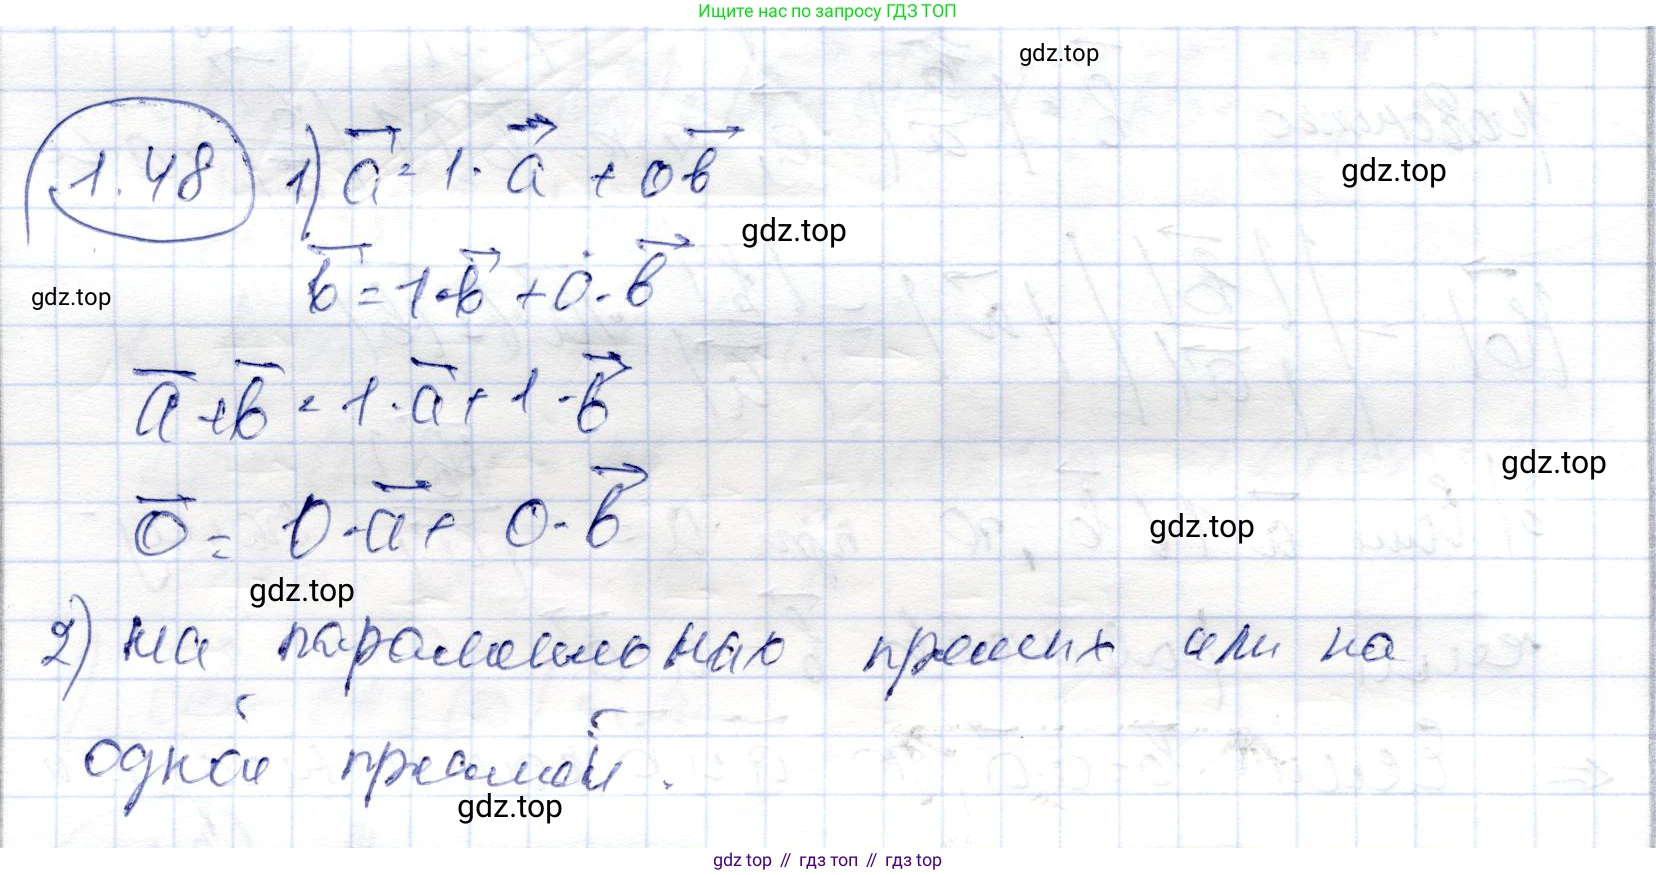 Ищите нас по запросу ГДЗ ТОП
gdz.top
1.48 1) a = 1 · a + 0b
gdz.top
gdz.top
b = 1·b + 0·b
gdz.top
a + b = 1·a + 1·b
gdz.top
0 = 0·a + 0·b
gdz.top
gdz.top
2) на паралельнах прямих или на
одной прямой.
gdz.top
gdz top // гдз топ // gdz top